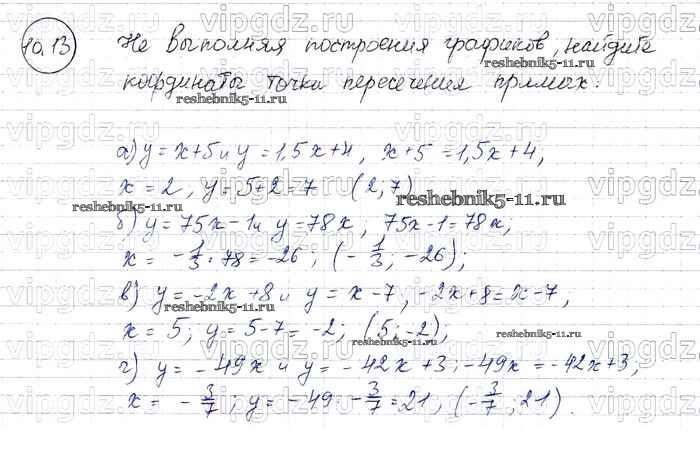 10.13
Не выполняя построения графиков, найдите
координаты точки пересечения прямых:
reshebnik5-11.ru
reshebnik5-11.ru
а) y = x+5 и y = 1,5x+4, x+5 = 1,5x+4,
x = 2, y = 5+2 = 7 (2; 7)
reshebnik5-11.ru
reshebnik5-11.ru
б) y = 75x-1 и y = 78x, 75x-1 = 78x,
x = -1/3 · 78 = -26; (-1/3; -26);
в) y = -2x+8 и y = x-7, -2x+8 = x-7,
x = 5; y = 5-7 = -2; (5; -2);
reshebnik5-11.ru
reshebnik5-11.ru
г) y = -49x и y = -42x+3; -49x = -42x+3,
x = -3/7; y = -49 · -3/7 = 21, (-3/7; 21).
vipgdz.ru